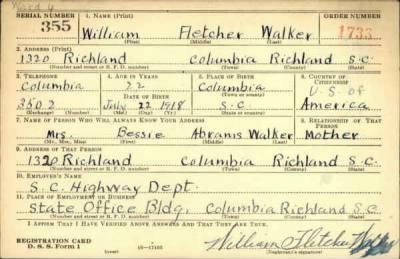 Ward 4
SERIAL NUMBER 1. NAME (Print) ORDER NUMBER
355 William Fletcher Walker 1733
(First) (Middle) (Last)
2. ADDRESS (Print)
1320 Richland Columbia Richland S.C.
(Number and street or R. F. D. number) (Town) (County) (State)
3. TELEPHONE 4. AGE IN YEARS 5. PLACE OF BIRTH 6. COUNTRY OF CITIZENSHIP
Columbia 22 Columbia U.S. of
DATE OF BIRTH (Town or county)
3502 July 22 1918 S.C. America
(Mo.) (Day) (Yr.) (State or country)
7. NAME OF PERSON WHO WILL ALWAYS KNOW YOUR ADDRESS 8. RELATIONSHIP OF THAT PERSON
Mrs. Bessie Abrams Walker Mother
(Mr., Mrs., Miss) (First) (Middle) (Last)
9. ADDRESS OF THAT PERSON
1320 Richland Columbia Richland S.C.
(Number and street or R. F. D. number) (Town) (County) (State)
10. EMPLOYER'S NAME
S.C. Highway Dept.
11. PLACE OF EMPLOYMENT OR BUSINESS
State Office Bldg. Columbia Richland S.C.
(Number and street or R. F. D. number) (Town) (County) (State)
I AFFIRM THAT I HAVE VERIFIED ABOVE ANSWERS AND THAT THEY ARE TRUE.
REGISTRATION CARD
D. S. S. Form 1 William Fletcher Walker